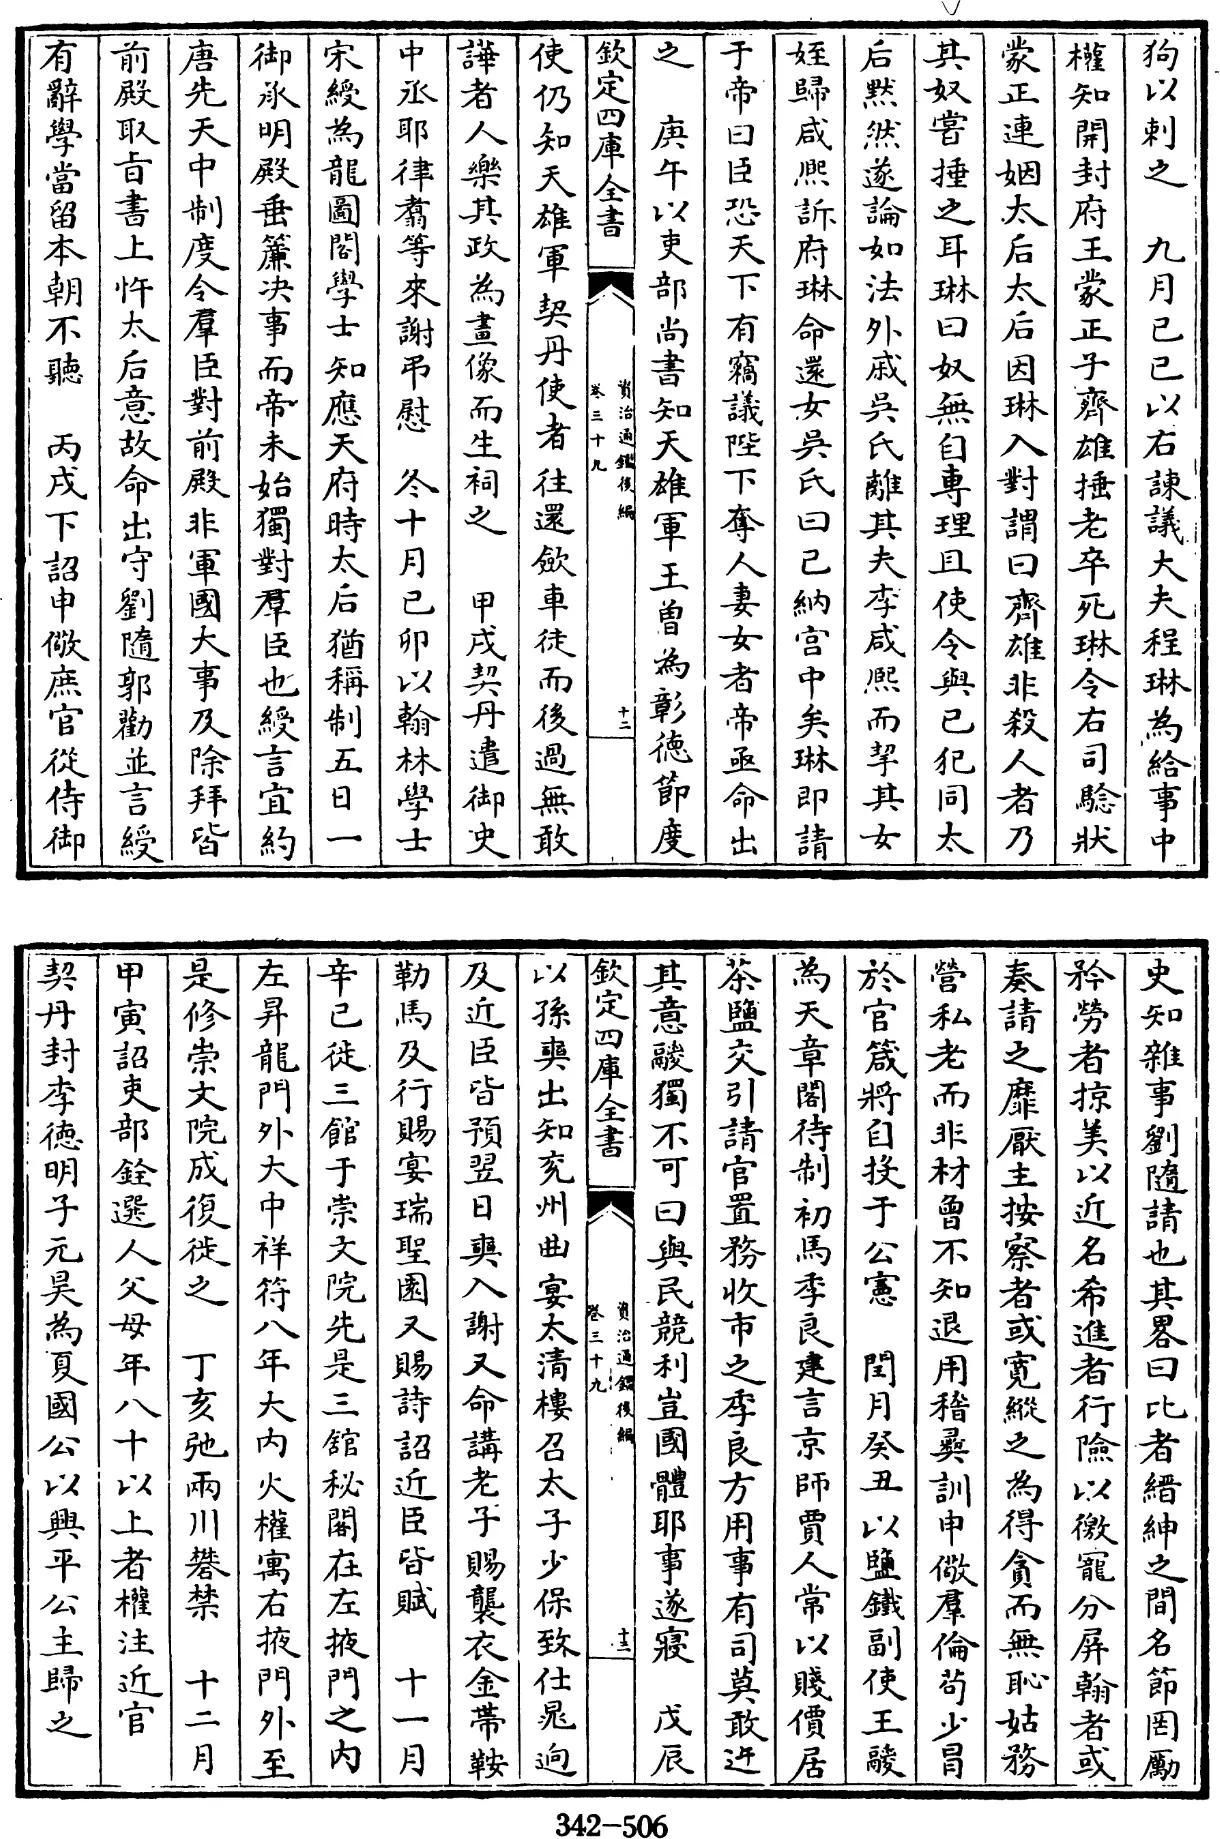 狥以刺之　九月己巳以右諫議大夫程琳為給事中
權知開封府王蒙正子齊雄捶老卒死琳令右司驗狀
蒙正連姻太后太后因琳入對謂曰齊雄非殺人者乃
其奴嘗捶之耳琳曰奴無自專理且使令與己犯同太
后黙然遂論如法外戚吳氏離其夫李咸熈而挈其女
姪歸咸熈訴府琳命還女吳氏曰已納宫中矣琳即請
于帝曰臣恐天下有竊議陛下奪人妻女者帝亟命出
之　庚午以吏部尚書知天雄軍王曾為彰德節度
欽定四庫全書
資治通鑑後編
卷三十九
十二
使仍知天雄軍契丹使者往還斂車徒而後過無敢
譁者人樂其政為畫像而生祠之　甲戌契丹遣御史
中丞耶律翥等來謝弔慰　冬十月己卯以翰林學士
宋綬為龍圖閣學士知應天府時太后猶稱制五日一
御承明殿垂簾决事而帝未始獨對羣臣也綬言宜約
唐先天中制度令羣臣對前殿非軍國大事及除拜皆
前殿取旨書上忤太后意故命出守劉隨郭勸並言綬
有辭學當留本朝不聽　丙戌下詔申儆庶官從侍御
史知雜事劉隨請也其畧曰比者縉紳之間名節罔勵
矜勞者掠美以近名希進者行險以徼寵分屏翰者或
奏請之靡厭主按察者或寛縱之為得貪而無恥姑務
營私老而非材曾不知退用稽彞訓申儆羣倫苟少冒
於官箴將自投于公憲　閏月癸丑以鹽鐵副使王鬷
為天章閣待制初馬季良建言京師賈人常以賤價居
茶鹽交引請官置務收市之季良方用事有司莫敢迕
其意鬷獨不可曰與民競利豈國體耶事遂寢　戊辰
欽定四庫全書
資治通鑑後編
卷三十九
十三
以孫奭出知兖州曲宴太清樓召太子少保致仕晁迥
及近臣皆預翌日奭入謝又命講老子賜襲衣金帶鞍
勒馬及行賜宴瑞聖園又賜詩詔近臣皆賦　十一月
辛巳徙三館于崇文院先是三館秘閣在左掖門之内
左昇龍門外大中祥符八年大内火權寓右掖門外至
是修崇文院成復徙之　丁亥弛兩川礬禁　十二月
甲寅詔吏部銓選人父母年八十以上者權注近官
契丹封李德明子元昊為夏國公以興平公主歸之
342-506